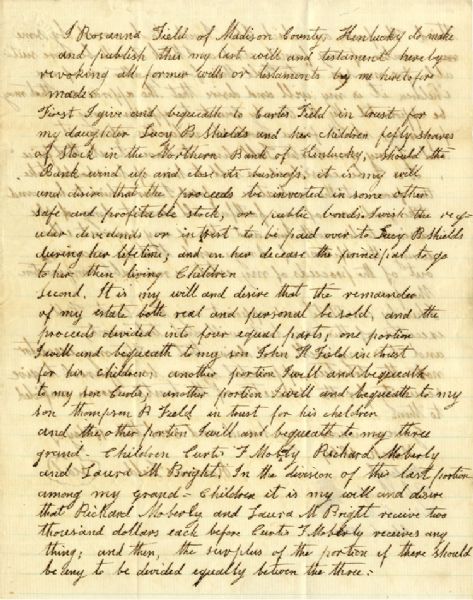 I Rosanna Field of Madison County, Kentucky do make
and publish this my last will and testament hereby
revoking all former wills or testaments by me heretofor
made.
First I give and bequeath to Curtis Field in trust for
my daughter Lucy B Shields and her children fifty shares
of Stock in the Northern Bank of Kentucky, should the
Bank wind up and close its business, it is my will
and desire that the proceeds be invested in some other
safe and profitable stock, or public bonds. I wish the reg-
ular dividends or intrest to be paid over to Lucy B Shields
during her lifetime, and in her decease the principal to go
to her then living Children
Second. It is my will and desire that the remainder
of my estate both real and personal be sold, and the
proceeds divided into four equal parts; one portion
I will and bequeath to my son John H Field in trust
for his children; another portion I will and bequeath
to my son Curtis; another portion I will and bequeath to my
son Thompson B Field in trust for his children
and the other portion I will and bequeath to my three
grand-Children Curtis F Mobly Richard Moberly
and Laura M Bright. In the division of the last portion
among my grand-Children it is my will and desire
that Richard Moberly and Laura M Bright receive two
thousand dollars each before Curtis F Moberly receives any
thing; and then, the surplus of the portion if there should
be any to be divided equally betwen the three: